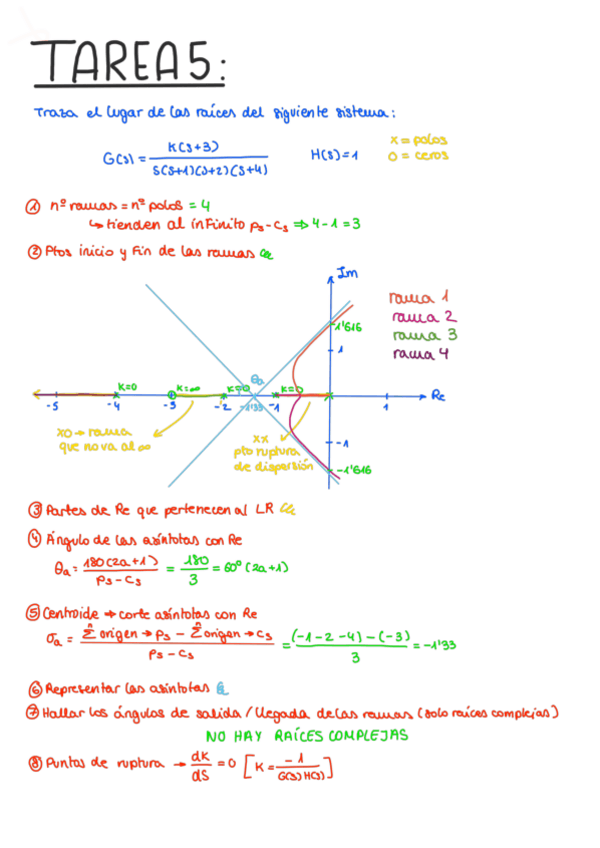 TAREA 5:
Traza el lugar de las raíces del siguiente sistema:
G(s) = K(s+3) / s(s+1)(s+2)(s+4)
H(s) = 1
x = polos
o = ceros
① nº ramas = nº polos = 4
↳ tienden al infinito ps - cs ⇒ 4 - 1 = 3
② Ptos inicio y fin de las ramas
Im
rama 1
rama 2
rama 3
rama 4
1'616
1
θa
K=0 K=∞ K=0 K=0
-5 -4 -3 -2 -1'33 -1 1 Re
xo → rama
que no va al ∞
xx
pto ruptura
de dispersión
-1
-1'616
③ Partes de Re que pertenecen al LR
④ Ángulo de las asíntotas con Re
θa = 180(2a+1) / ps - cs = 180 / 3 = 60º (2a+1)
⑤ Centroide → corte asíntotas con Re
σa = Σ origen → ps - Σ origen → cs / ps - cs = (-1 -2 -4) - (-3) / 3 = -1'33
⑥ Representar las asíntotas
⑦ Hallar los ángulos de salida / llegada de las ramas (solo raíces complejas)
NO HAY RAÍCES COMPLEJAS
⑧ Puntos de ruptura → dK/ds = 0 [K = -1 / G(s)H(s)]